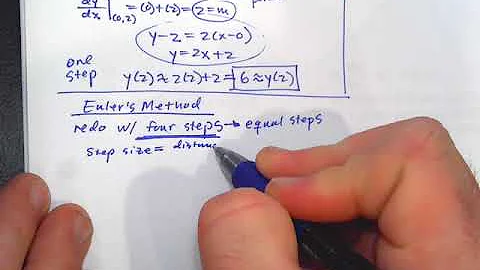 dy/dx |(0,2) = (0)+(2) = 2 = m
y-2 = 2(x-0)
y = 2x+2
one
step y(2) ≈ 2(2)+2 = 6 ≈ y(2)
Euler's Method
redo w/ four steps → equal steps
step size = distanc